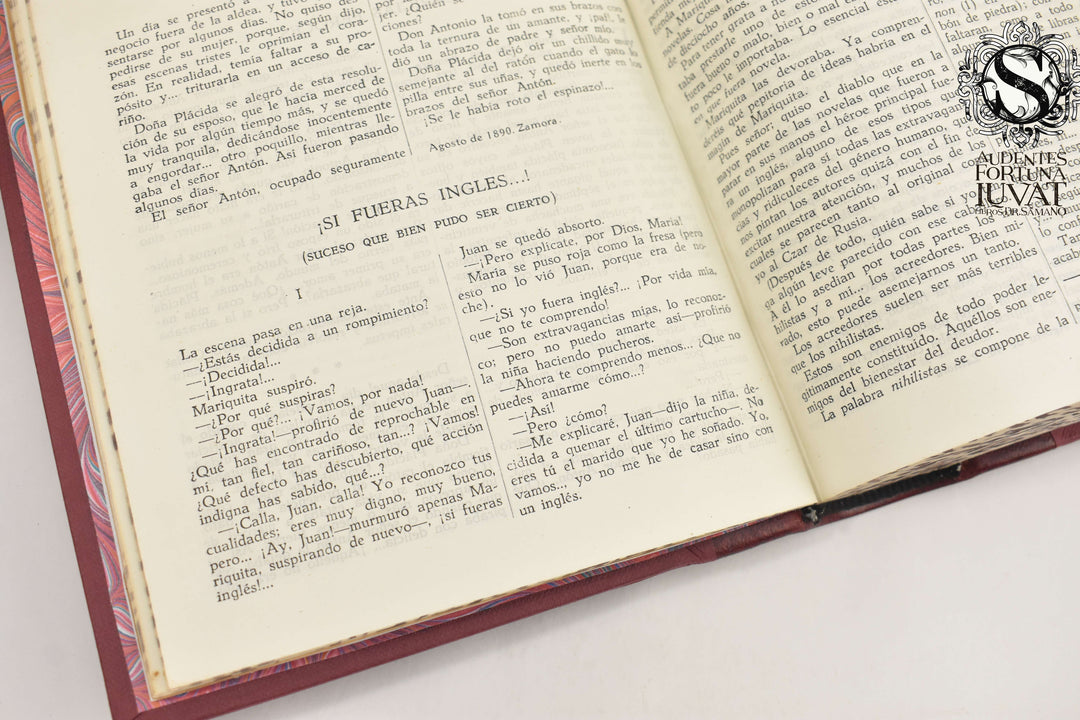 Un día se presentó a
negocio fuera de la aldea, y tuvo
sentarse por algunos días. No quiso des-
pedirse de su mujer, porque, según dijo,
esas escenas tristes le oprimían el cora-
zón. En realidad, temía faltar a su pro-
pósito y... triturarla en un acceso de ca-
riño.
Doña Plácida se alegró de esta resolu-
ción de su esposo, que le hacía merced de
la vida por algún tiempo más, y se quedó
muy tranquila, dedicándose inocentemente
a engordar... otro poquillo, mientras lle-
gaba el señor Antón. Así fueron pasando
algunos días.
El señor Antón, ocupado seguramente
por
jer. ¿Quién s
ciones?
Don Antonio la tomó en sus brazos con
toda la ternura de un amante, y ¡paf!, le
dió un abrazo de padre y señor mío.
Doña Plácida dejó oír un chillido amargo
semejante al del ratón cuando el gato lo
pilla entre sus uñas, y quedó inerte en los
brazos del señor Antón.
¡Se le había roto el espinazo!...
Agosto de 1890. Zamora.
¡SI FUERAS INGLES...!
(SUCESO QUE BIEN PUDO SER CIERTO)
I
La escena pasa en una reja.
—¿Estás decidida a un rompimiento?
—¡Decidida!...
—¡Ingrata!...
Mariquita suspiró.
—¿Por qué suspiras?
—¿Por qué?... ¡Vamos, por nada!
—¡Ingrata!—profirió de nuevo Juan—.
¿Qué has encontrado de reprochable en
mí, tan fiel, tan cariñoso, tan...? ¡Vamos!
¿Qué defecto has descubierto, qué acción
indigna has sabido, qué...?
—¡Calla, Juan, calla! Yo reconozco tus
cualidades; eres muy digno, muy bueno,
pero... ¡Ay, Juan!—murmuró apenas Ma-
riquita, suspirando de nuevo—, ¡si fueras
inglés!...
Juan se quedó absorto.
—¡Pero explícate, por Dios, María!
María se puso roja como la fresa (pero
esto no lo vió Juan, porque era de no-
che).
—¿Si yo fuera inglés?... ¡Por vida mía,
que no te comprendo!
—Son extravagancias mías, lo reconoz-
co; pero no puedo amarte así—profirió
la niña haciendo pucheros.
—Ahora te comprendo menos... ¿Que no
puedes amarme cómo...?
—¡Así!
—Pero ¿cómo?
—Me explicaré, Juan—dijo la niña, de-
cidida a quemar el último cartucho—. No
eres tú el marido que yo he soñado. Yo,
vamos... yo no me he de casar sino con
un inglés.
permite
A Mariqui
novelas. Cosa
dieciocho años.
Para tener grata a
fuera bueno o malo, bien o mal
to poco le importaba. Lo esencial est
que fuera novela.
Mariquita las devoraba. Ya compren-
deréis qué pepitoria de ideas habría en el
magín de Mariquita.
Pues señor, quiso el diablo que en la
mayor parte de las novelas que fueron a
parar en sus manos el héroe principal fue-
ra un inglés, alguno de esos tipos que
monopolizan para sí todas las extravagan-
cias y ridiculeces del género humano, que
nos pintan los autores quizá con el fin de
excitar nuestra atención, y muchos de los
cuales se parecen tanto al original co
yo al Czar de Rusia.
(Después de todo, quién sabe si yo
ga algún leve parecido con ese cab
A él lo asedian por todas partes los
hilistas y a mí... los acreedores. Bien mi-
rado, esto puede asemejarnos un tanto.
Los acreedores suelen ser más terribles
que los nihilistas.
Estos son enemigos de todo poder le-
gítimamente constituído, Aquéllos son ene-
migos del bienestar del deudor.
La palabra nihilistas se compone de la
non (1)
hón de piedra); con
faltaran.
S
AUDENTES
FORTUNA
IUVAT
LIBROS DR. SÁMANO